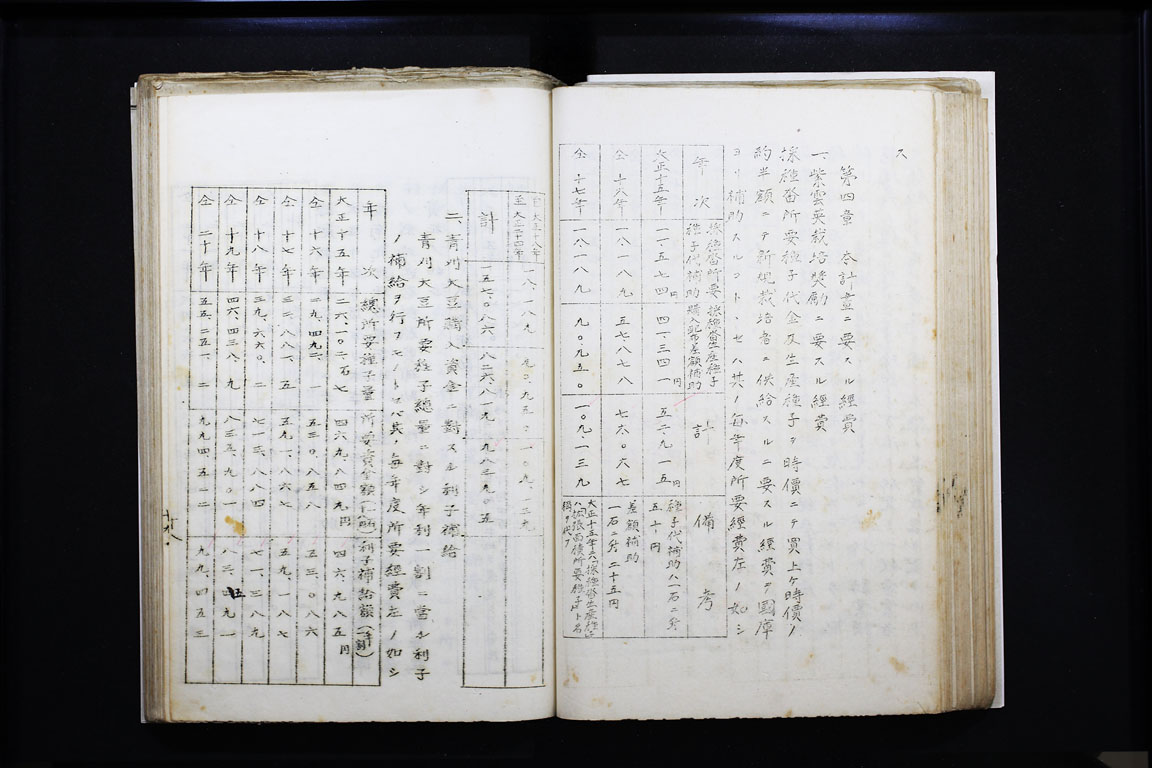 ス
第四章 本計畫ニ要スル經費
一、紫雲英栽培奬勵ニ要スル經費
採種畓所要種子代金及生産種子ヲ時價ニテ買上ケ時價ノ
約半額ニテ新規栽培者ニ供給スルニ要スル經費ヲ國庫
ヨリ補助スルコトヽセハ其ノ毎年度所要經費左ノ如シ
年次 採種畓所要種子代補助 採種畓生産種子購入配布差額補助 計 備考
大正十五年 一一、五七四円 四一、三四一円 五二、九一五円 種子代補助ハ一石ニ付五十円
仝十六年 一八、一八九 五七、八七八 七六、〇六七 差額補助一石ニ付二十五円
仝十七年 一八、一八九 九〇、九五〇 一〇九、一三九
自大正十八年至大正二十四年 一八、一八九 九〇、九五〇 一〇九、一三九
計 一五七、〇八六 八二六、八一九 九八三、九〇五
二、青刈大豆購入資金ニ對スル利子補給
青刈大豆所要種子總量ニ對シ年利一割ニ當ル利子
ノ補給ヲ行フモノトセハ其ノ毎年度所要經費左ノ如シ
年次 總所要種子量 所要資金額 利子補給額（一年割）
大正十五年 二六、一〇二石七 四六九、八四九円 四六、九八五円
仝十六年 二九、四九二、一 五三〇、八五八 五三、〇八六
仝十七年 三二、八八一、五 五九一、八六七 五九、一八七
仝十八年 三九、六六〇、二 七一三、八八四 七一、三八九
仝十九年 四六、四三八、九 八三五、九〇一 八三、五九一
仝二十年 五五、二五一、二 九九四、五二二 九九、四五三